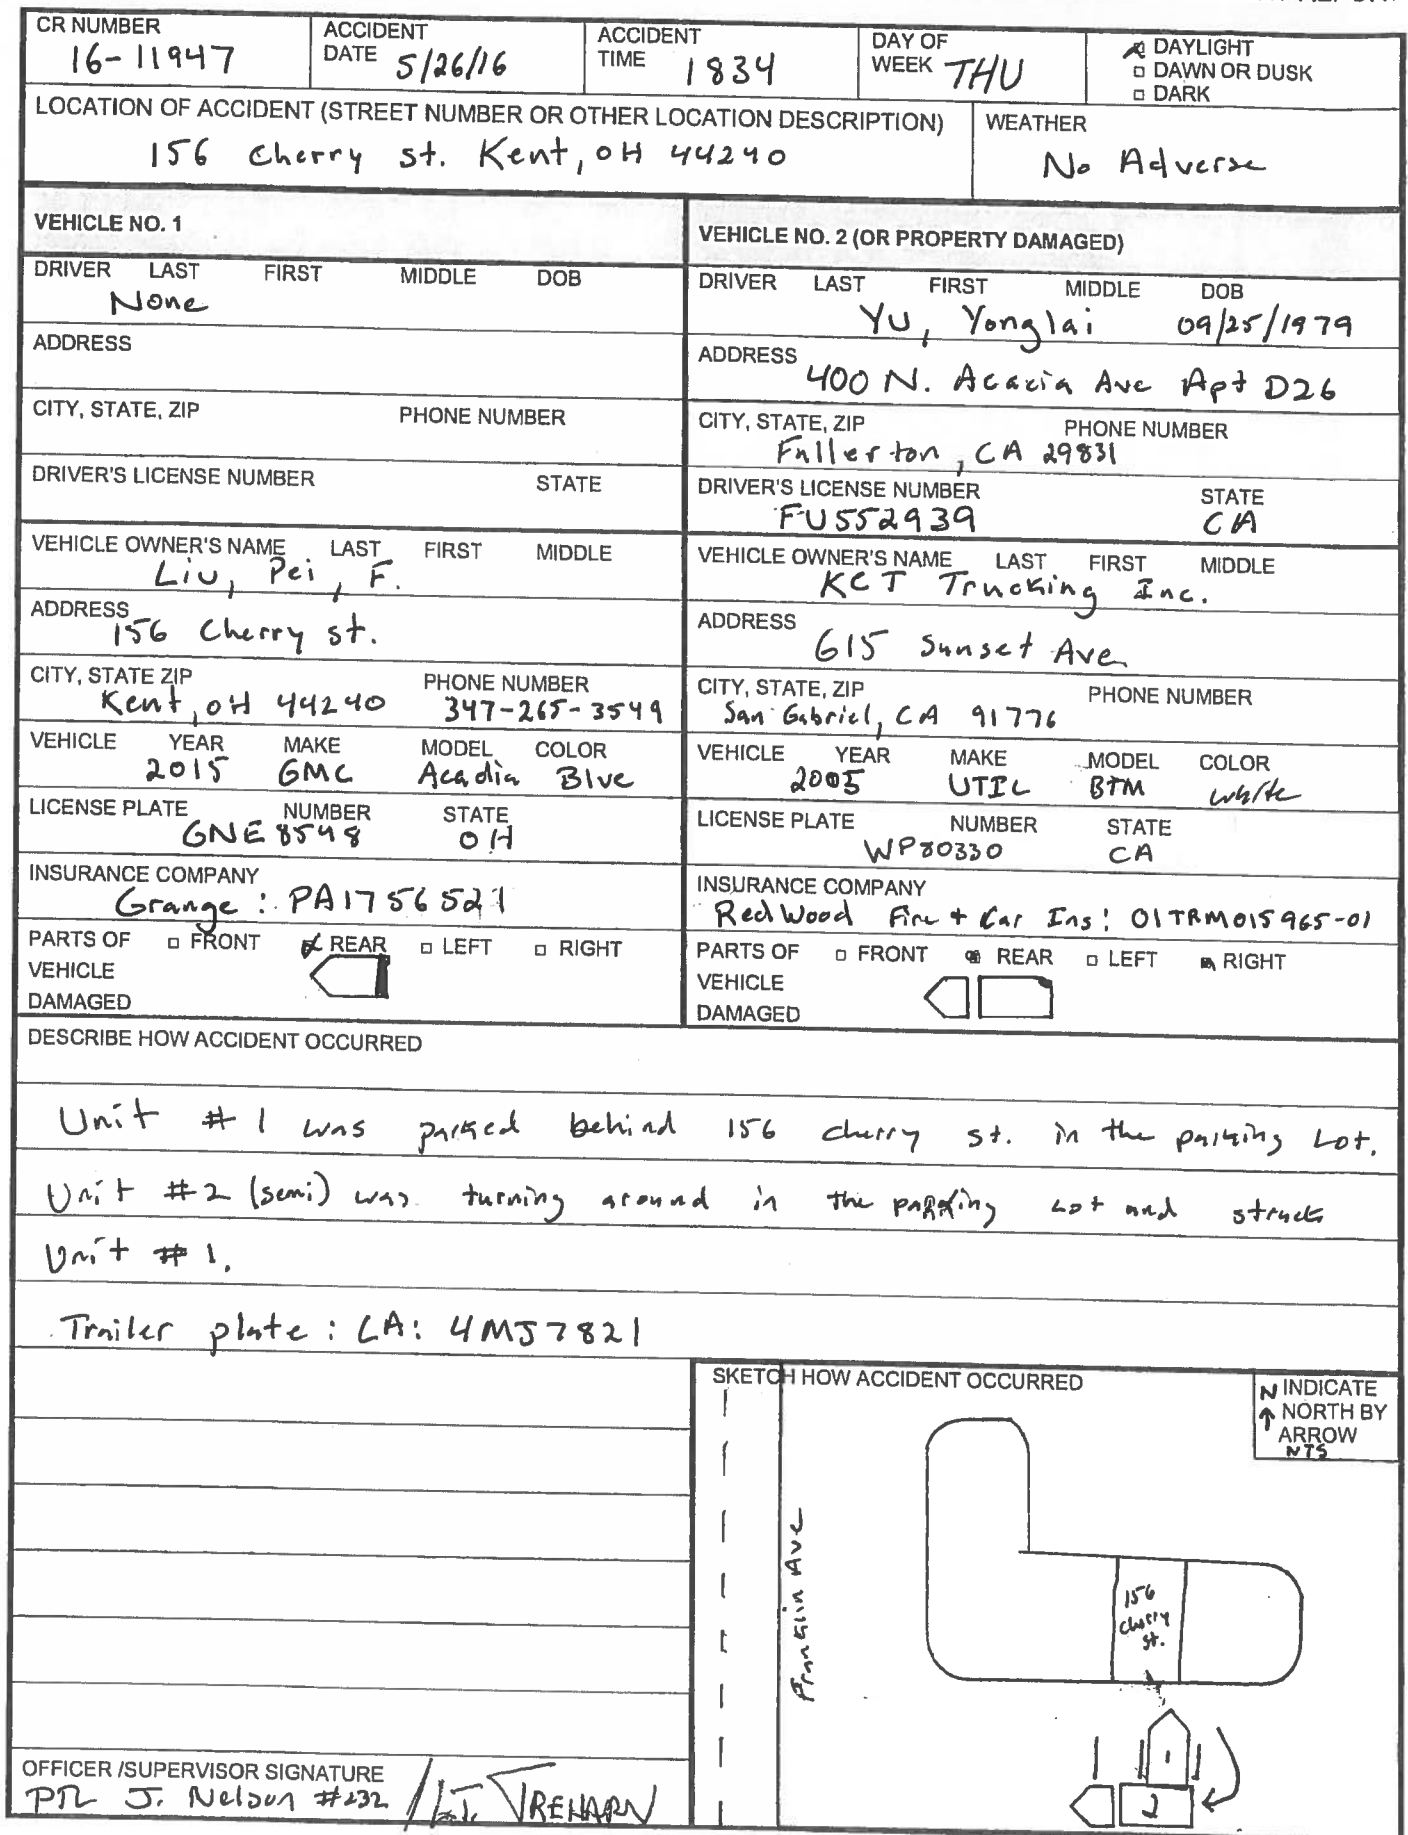 CR NUMBER ACCIDENT ACCIDENT DAY OF DAYLIGHT
16-11947 DATE 5/26/16 TIME 1834 WEEK THU DAWN OR DUSK
DARK
LOCATION OF ACCIDENT (STREET NUMBER OR OTHER LOCATION DESCRIPTION) WEATHER
156 Cherry st. Kent, OH 44240 No Adverse
VEHICLE NO. 1 VEHICLE NO. 2 (OR PROPERTY DAMAGED)
DRIVER LAST FIRST MIDDLE DOB
None
ADDRESS
CITY, STATE, ZIP PHONE NUMBER
DRIVER'S LICENSE NUMBER STATE
VEHICLE OWNER'S NAME LAST FIRST MIDDLE
Liu, Pei, F.
ADDRESS
156 Cherry st.
CITY, STATE ZIP PHONE NUMBER
Kent, OH 44240 347-265-3549
VEHICLE YEAR MAKE MODEL COLOR
2015 GMC Acadia Blue
LICENSE PLATE NUMBER STATE
GNE8548 OH
INSURANCE COMPANY
Grange: PA1756521
PARTS OF FRONT REAR LEFT RIGHT
VEHICLE
DAMAGED
DRIVER LAST FIRST MIDDLE DOB
Yu, Yonglai 09/25/1979
ADDRESS
400 N. Acacia Ave Apt D26
CITY, STATE, ZIP PHONE NUMBER
Fullerton, CA 29831
DRIVER'S LICENSE NUMBER STATE
FU552939 CA
VEHICLE OWNER'S NAME LAST FIRST MIDDLE
KCT Trucking Inc.
ADDRESS
615 Sunset Ave
CITY, STATE, ZIP PHONE NUMBER
San Gabriel, CA 91776
VEHICLE YEAR MAKE MODEL COLOR
2005 UTIL BTM white
LICENSE PLATE NUMBER STATE
WP80330 CA
INSURANCE COMPANY
RedWood Fire + Car Ins: 01TRM015965-01
PARTS OF FRONT REAR LEFT RIGHT
VEHICLE
DAMAGED
DESCRIBE HOW ACCIDENT OCCURRED
Unit #1 was parked behind 156 cherry st. in the parking Lot.
Unit #2 (semi) was turning around in the parking Lot and struck
Unit #1.
Trailer plate: CA: 4MJ7821
SKETCH HOW ACCIDENT OCCURRED
N INDICATE
NORTH BY
ARROW
NTS
Franklin Ave
156
cherry
st.
1
2
OFFICER /SUPERVISOR SIGNATURE
PTL J. Nelson #232 / Lt.